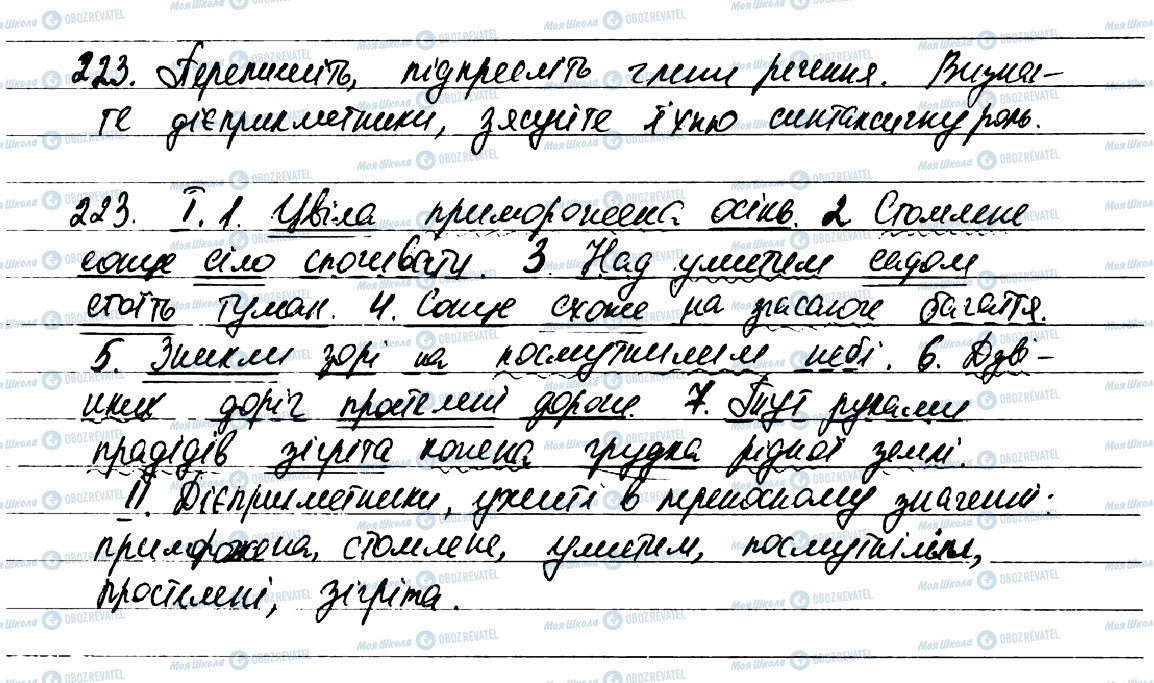 223. Перепишіть, підкресліть члени речення. Визнач-
те дієприкметники, зясуйте їхню синтаксичну роль.
223. I. 1. Цвіла приморожена осінь. 2 Стомлене
сонце сіло спочивати. 3. Над умитим садом
стоїть туман. 4. Сонце схоже на згасаюче багаття.
5. Зникли зорі на посмутнілим небі. 6. Дзві-
нких доріг простелені дороги. 7. Тут руками
прадідів зігріта кожна грудка рідної землі.
II. Дієприкметники, ужиті в переносному значенні:
приморожена, стомлене, умитим, посмутнілім,
простелені, зігріта.